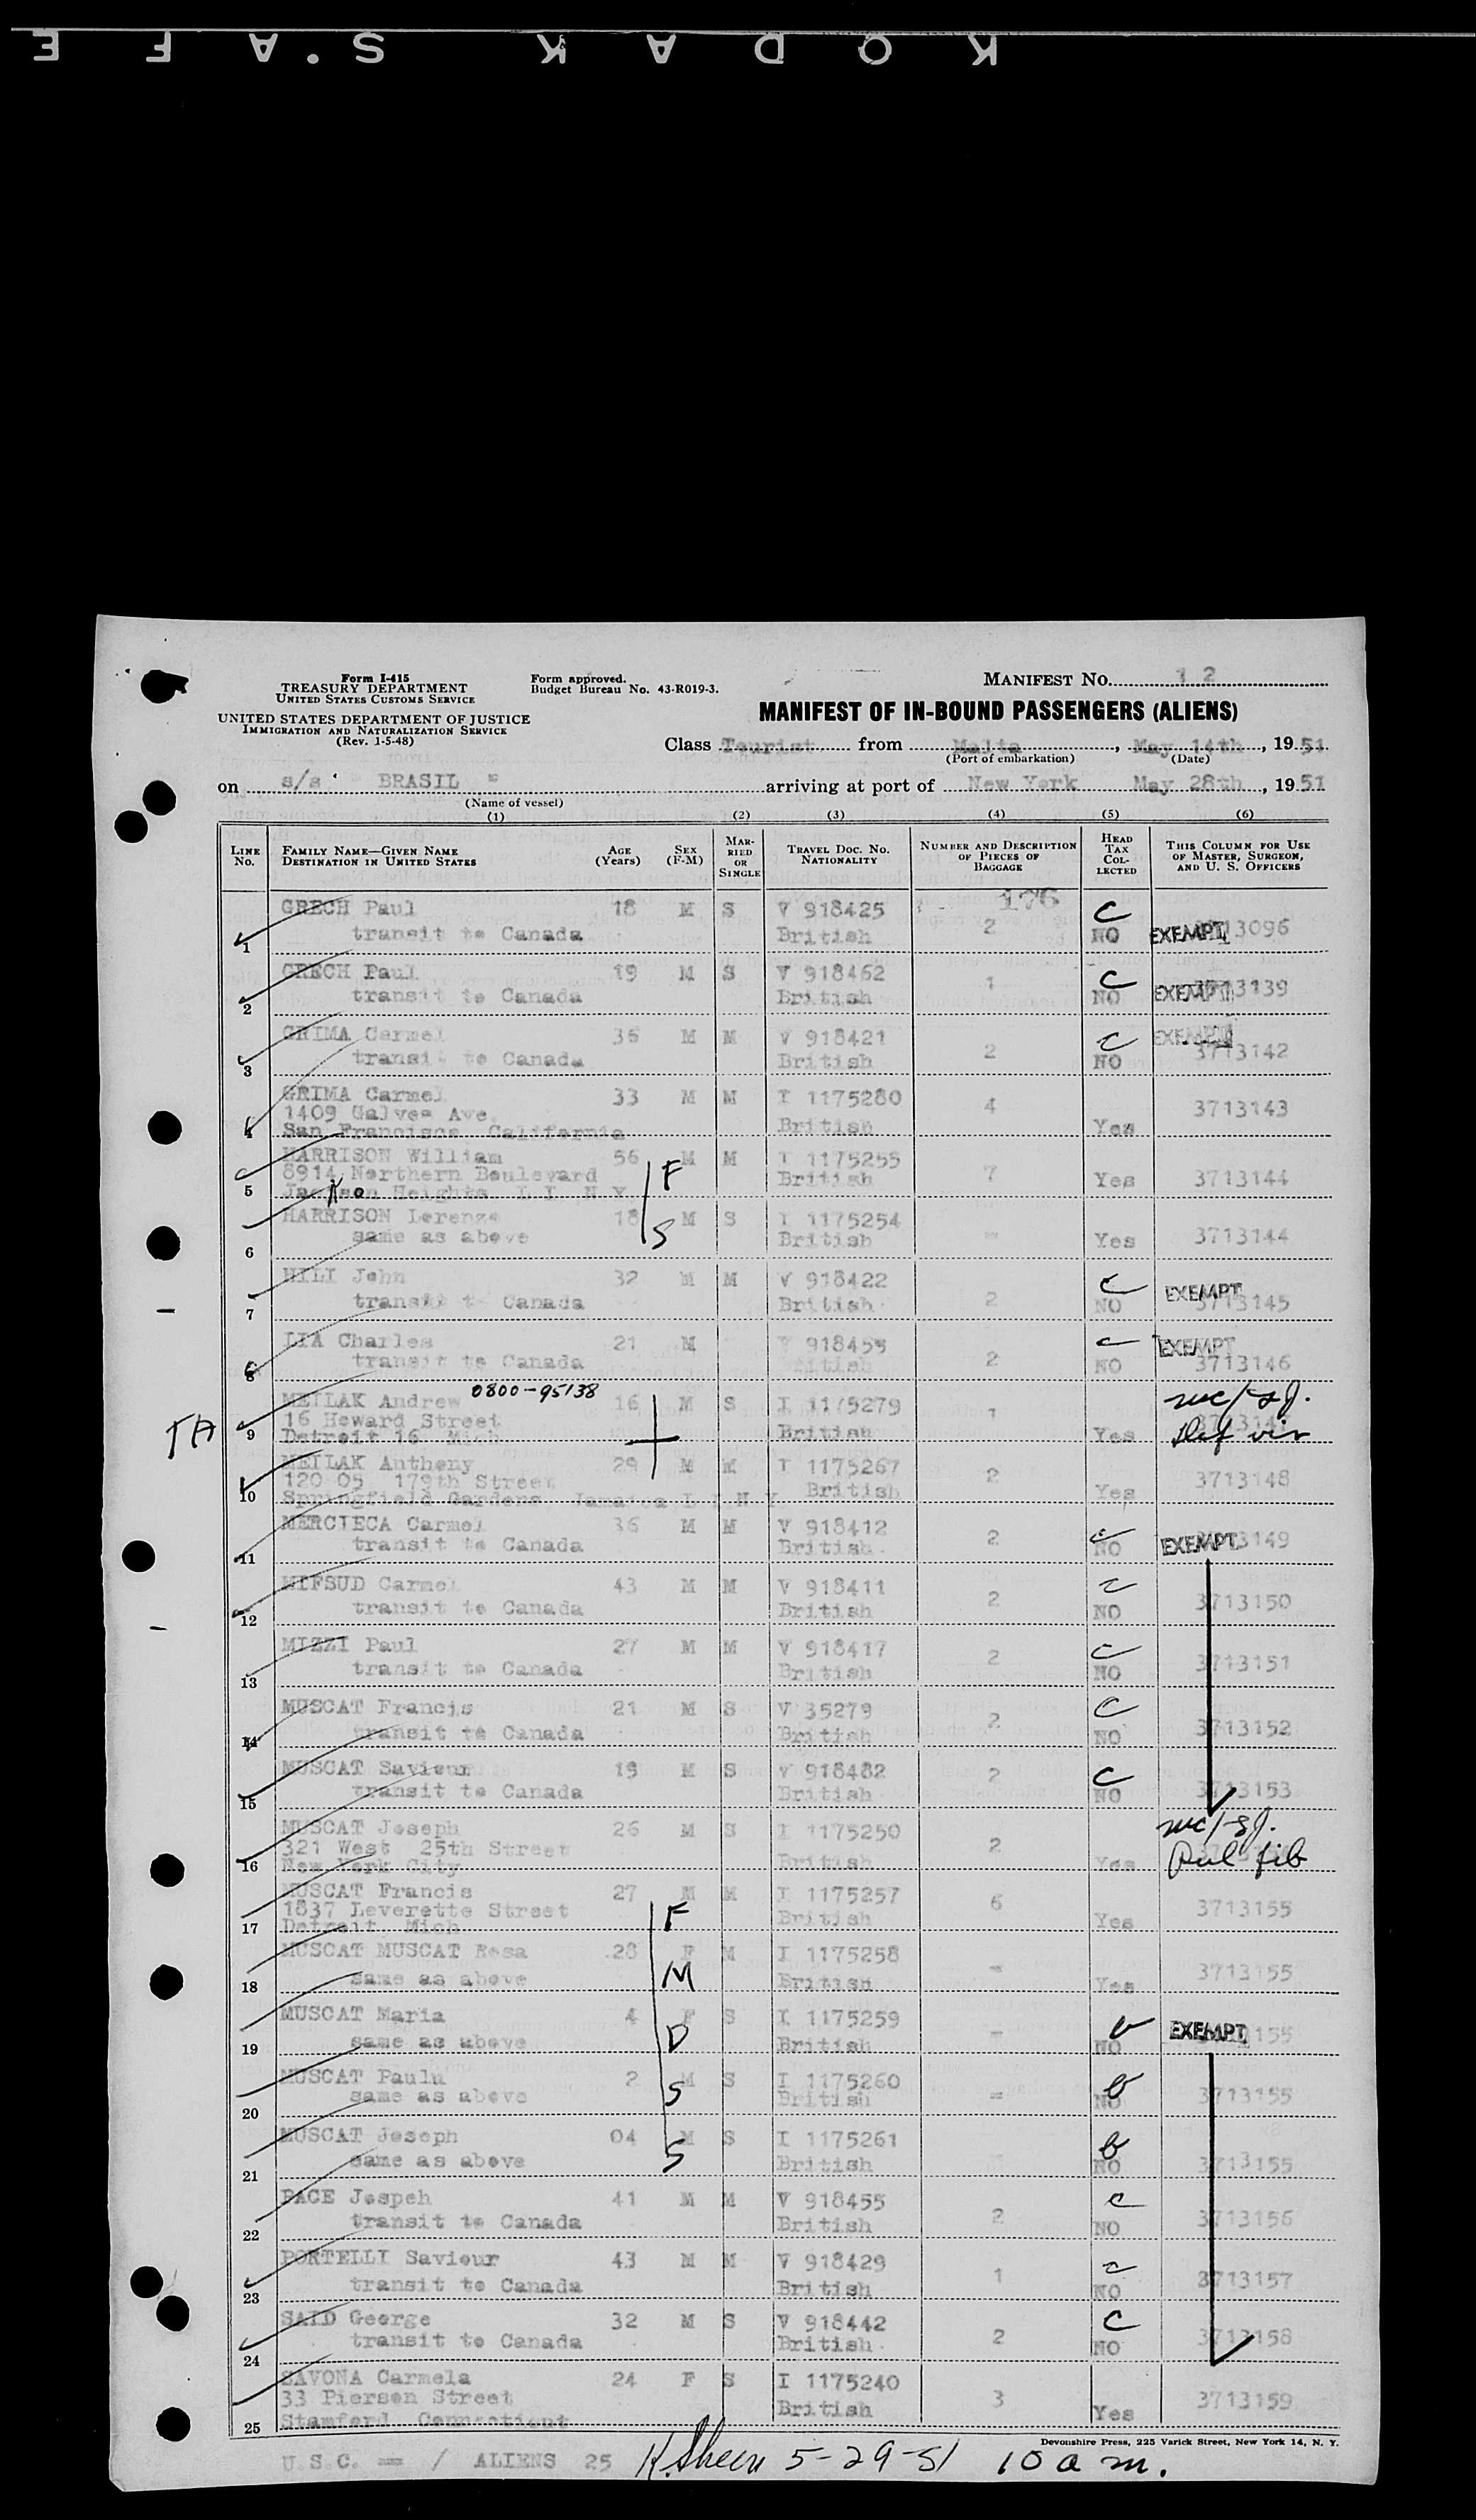 KODAK S.A F E
Form I-415
TREASURY DEPARTMENT
UNITED STATES CUSTOMS SERVICE
UNITED STATES DEPARTMENT OF JUSTICE
IMMIGRATION AND NATURALIZATION SERVICE
(Rev. 1-5-48)
Form approved.
Budget Bureau No. 43-R019-3.
MANIFEST No. 12
MANIFEST OF IN-BOUND PASSENGERS (ALIENS)
Class Tourist from Malta, May 14th, 1951
(Port of embarkation) (Date)
on s/s " BRASIL " arriving at port of New York May 28th, 1951
(Name of vessel)
(1) (2) (3) (4) (5) (6)
LINE No. FAMILY NAME—GIVEN NAME DESTINATION IN UNITED STATES AGE (Years) SEX (F-M) MARRIED OR SINGLE TRAVEL DOC. NO. NATIONALITY NUMBER AND DESCRIPTION OF PIECES OF BAGGAGE HEAD TAX COLLECTED THIS COLUMN FOR USE OF MASTER, SURGEON, AND U. S. OFFICERS
176
GRECH Paul 18 M S V 918425 2 C
1 transit to Canada British NO EXEMPT 3713096
GRECH Paul 19 M S V 918462 1 C
2 transit to Canada British NO EXEMPT 3713139
GRIMA Carmel 36 M M V 918421 2 C EXEMPT
3 transit to Canada British NO 3713142
GRIMA Carmel 33 M M I 1175280 4 3713143
1409 Galvez Ave
4 San Francisco California British Yes
HARRISON William 56 M M I 1175255 7 F
8914 Northern Boulevard British Yes 3713144
5 Jackson Heights L I N Y
HARRISON Lorenzo 18 M S I 1175254 - S
6 same as above British Yes 3713144
HILI John 32 M M V 918422 2 C EXEMPT
7 transit to Canada British NO 3713145
LIA Charles 21 M 918459 2 C EXEMPT
8 transit to Canada NO 3713146
TA
MEILAK Andrew 0800-95138 16 M S I 1175279 1
9 16 Howard Street
Detroit 16 Mich British Yes
MEILAK Anthony 29 M M I 1175267 2 3713148
120 05 179th Street British Yes
10 Springfield Gardens, Jamaica L I N Y
MERCIECA Carmel 36 M M V 918412 2 C
11 transit to Canada British NO EXEMPT 3713149
MIFSUD Carmel 43 M M V 918411 2 C
12 transit to Canada British NO 3713150
MIZZI Paul 27 M M V 918417 2 C
13 transit to Canada British NO 3713151
MUSCAT Francis 21 M S V 35279 2 C
14 transit to Canada British NO 3713152
MUSCAT Saviour 19 M S V 918482 2 C
15 transit to Canada British NO 3713153
MUSCAT Joseph 26 M S I 1175250 2
321 West 25th Street
16 New York City British Yes Pul fib
MUSCAT Francis 27 M M I 1175257 6 F 3713155
1837 Leverette Street British
17 Detroit Mich Yes
MUSCAT MUSCAT Rosa 28 F M I 1175258 - M
18 same as above British Yes 3713155
MUSCAT Maria 4 F S I 1175259 - D
19 same as above British NO EXEMPT 155
MUSCAT Paulu 2 M S I 1175260 = S
20 same as above British NO 3713155
MUSCAT Joseph 04 M S I 1175261 S
21 same as above British NO 3713155
PACE Jospeh 41 M M V 918455 2 C
22 transit to Canada British NO 3713156
PORTELLI Saviour 43 M M V 918429 1 C
23 transit to Canada British NO 3713157
SAID George 32 M S V 918442 2 C
24 transit to Canada British NO 3713158
SAVONA Carmela 24 F S I 1175240 3
33 Pierson Street British Yes 3713159
25 Stamford Connecticut
Devonshire Press, 225 Varick Street, New York 14, N. Y.
U.S.C. = / ALIENS 25 K. Sheen 5-29-51 10 a m.